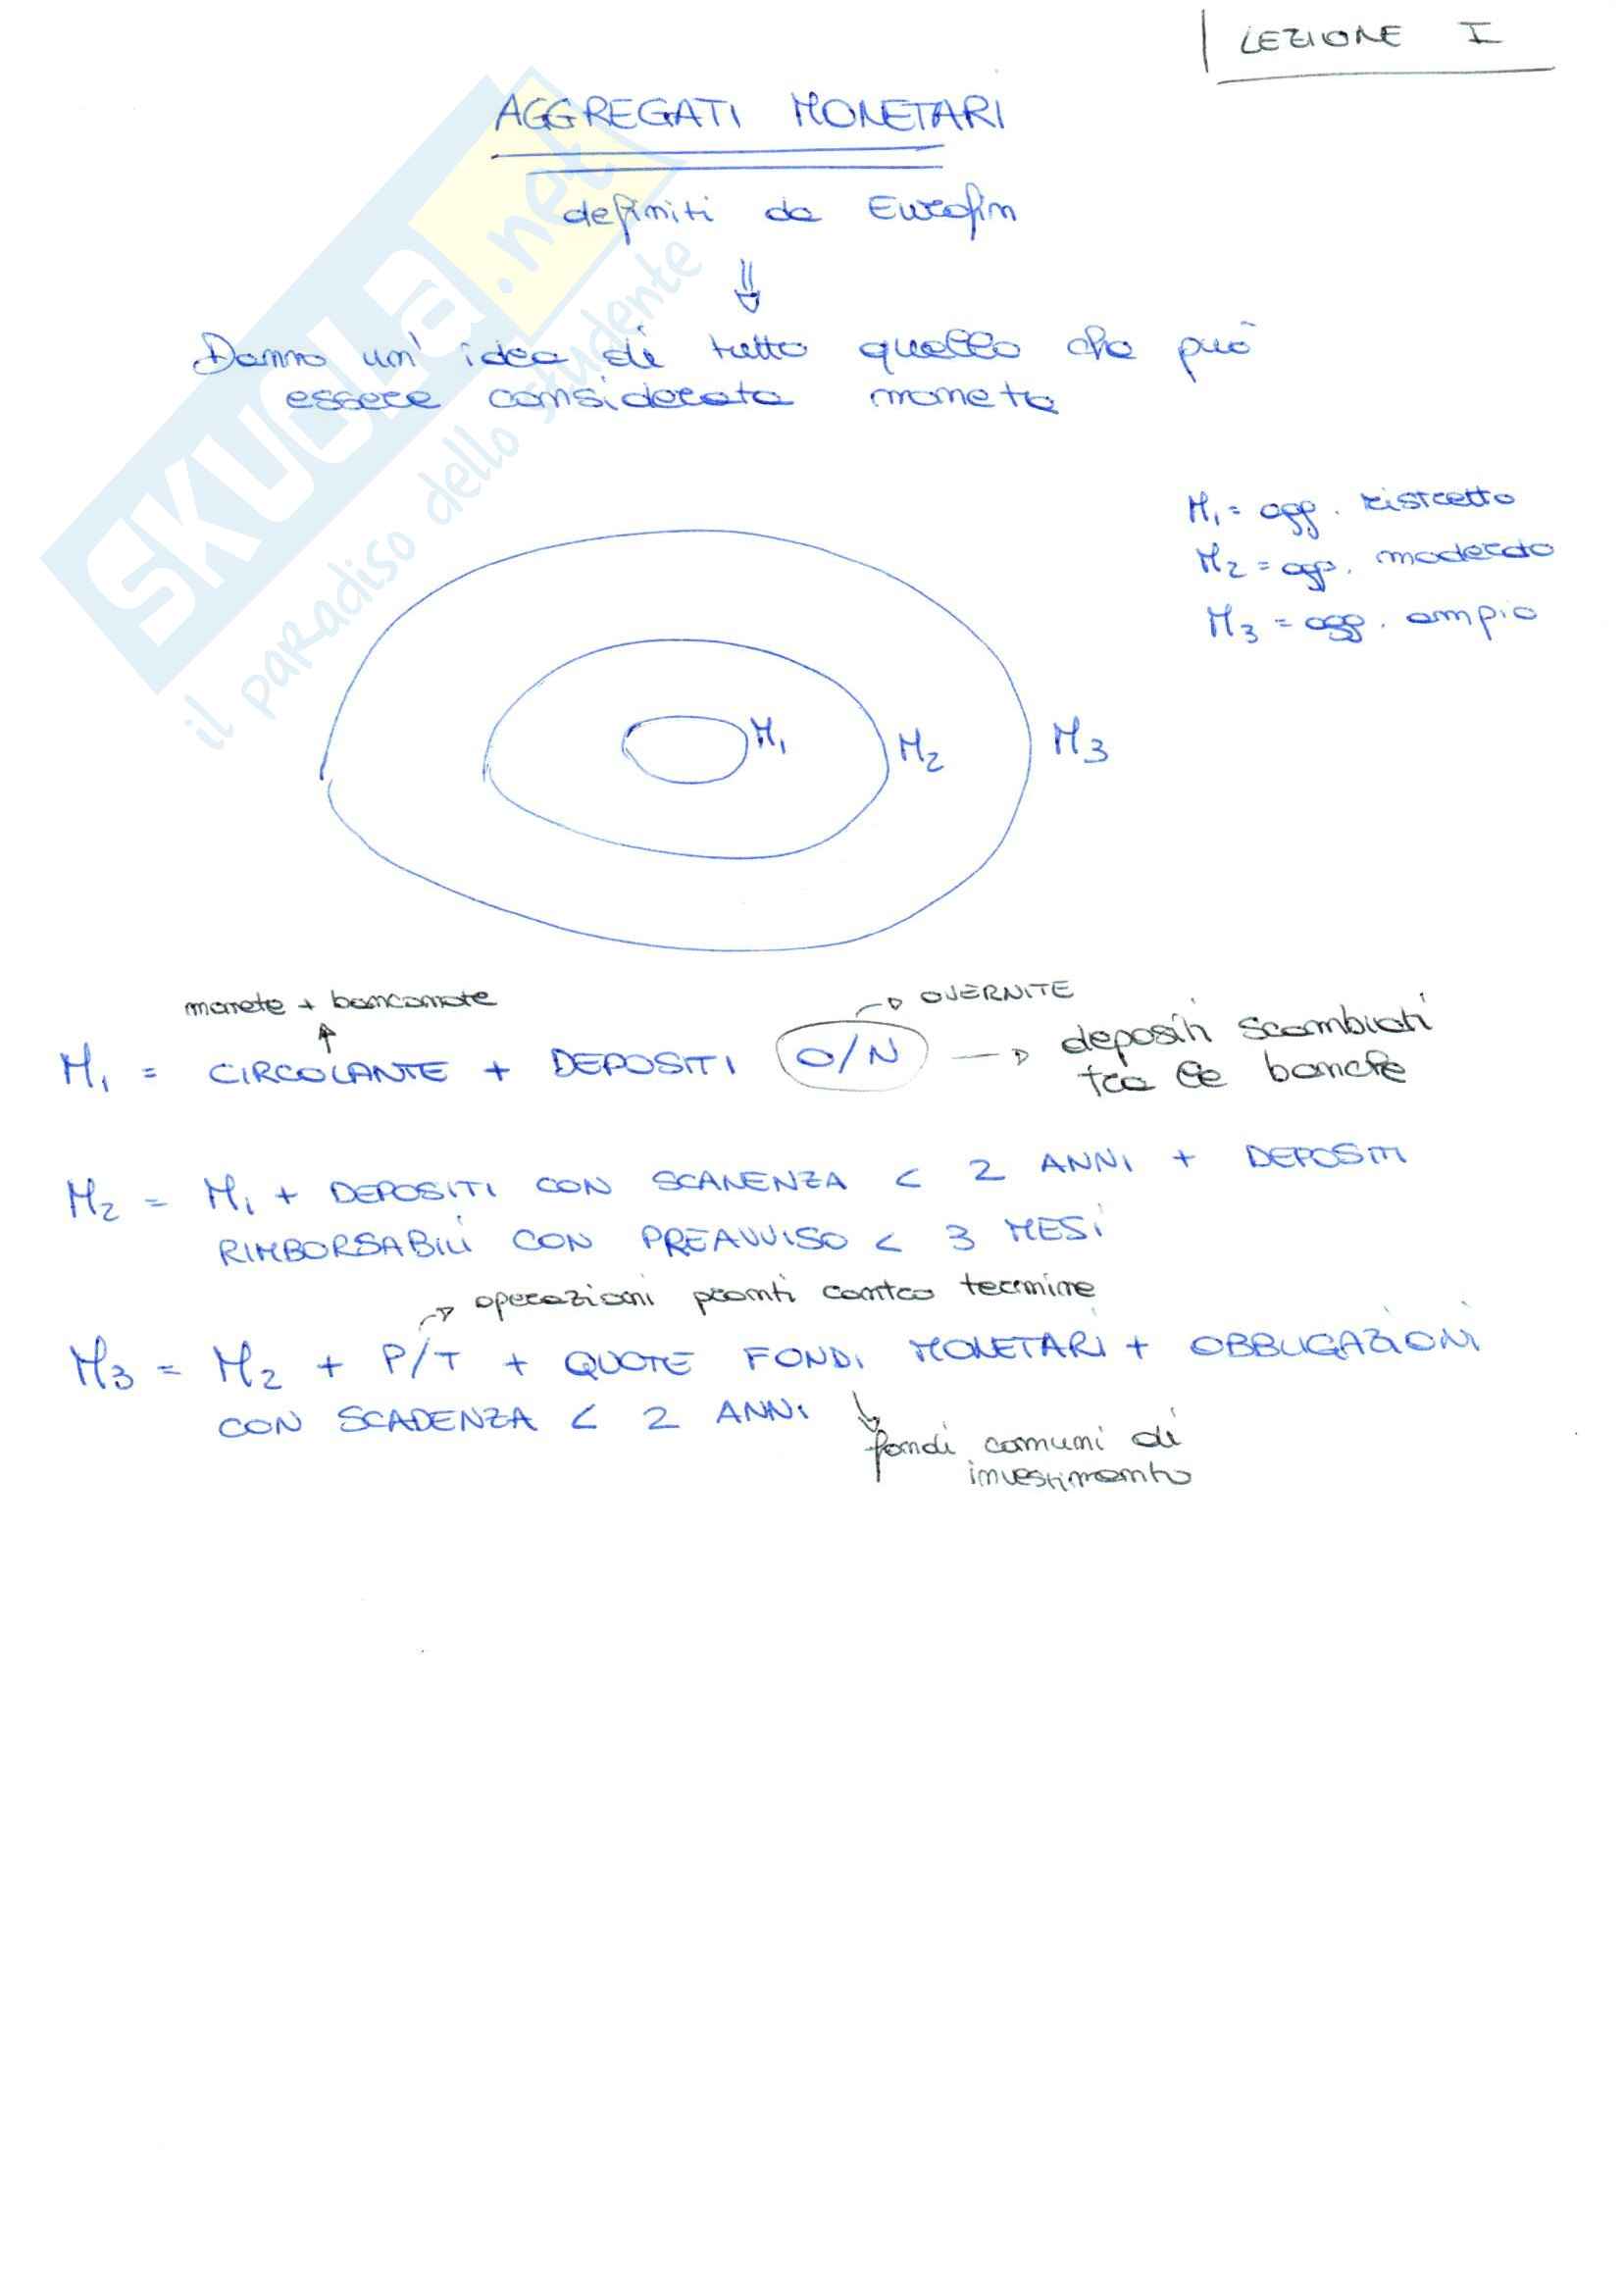 LEZIONE I
AGGREGATI MONETARI
definiti da Eurofin
Danno un' idea di tutto quello che può
essere considerato moneta
M₁ = agg. ristretto
M₂ = agg. moderato
M₃ = agg. ampio
M₁ M₂ M₃
monete + banconote
OVERNITE
M₁ = CIRCOLANTE + DEPOSITI O/N → depositi scambiati
tra le banche
M₂ = M₁ + DEPOSITI CON SCADENZA < 2 ANNI + DEPOSITI
RIMBORSABILI CON PREAVVISO < 3 MESI
operazioni pronti contro termine
M₃ = M₂ + P/T + QUOTE FONDI MONETARI + OBBLIGAZIONI
CON SCADENZA < 2 ANNI
fondi comuni di
investimento
SKUOLA.net
il paradiso dello studente